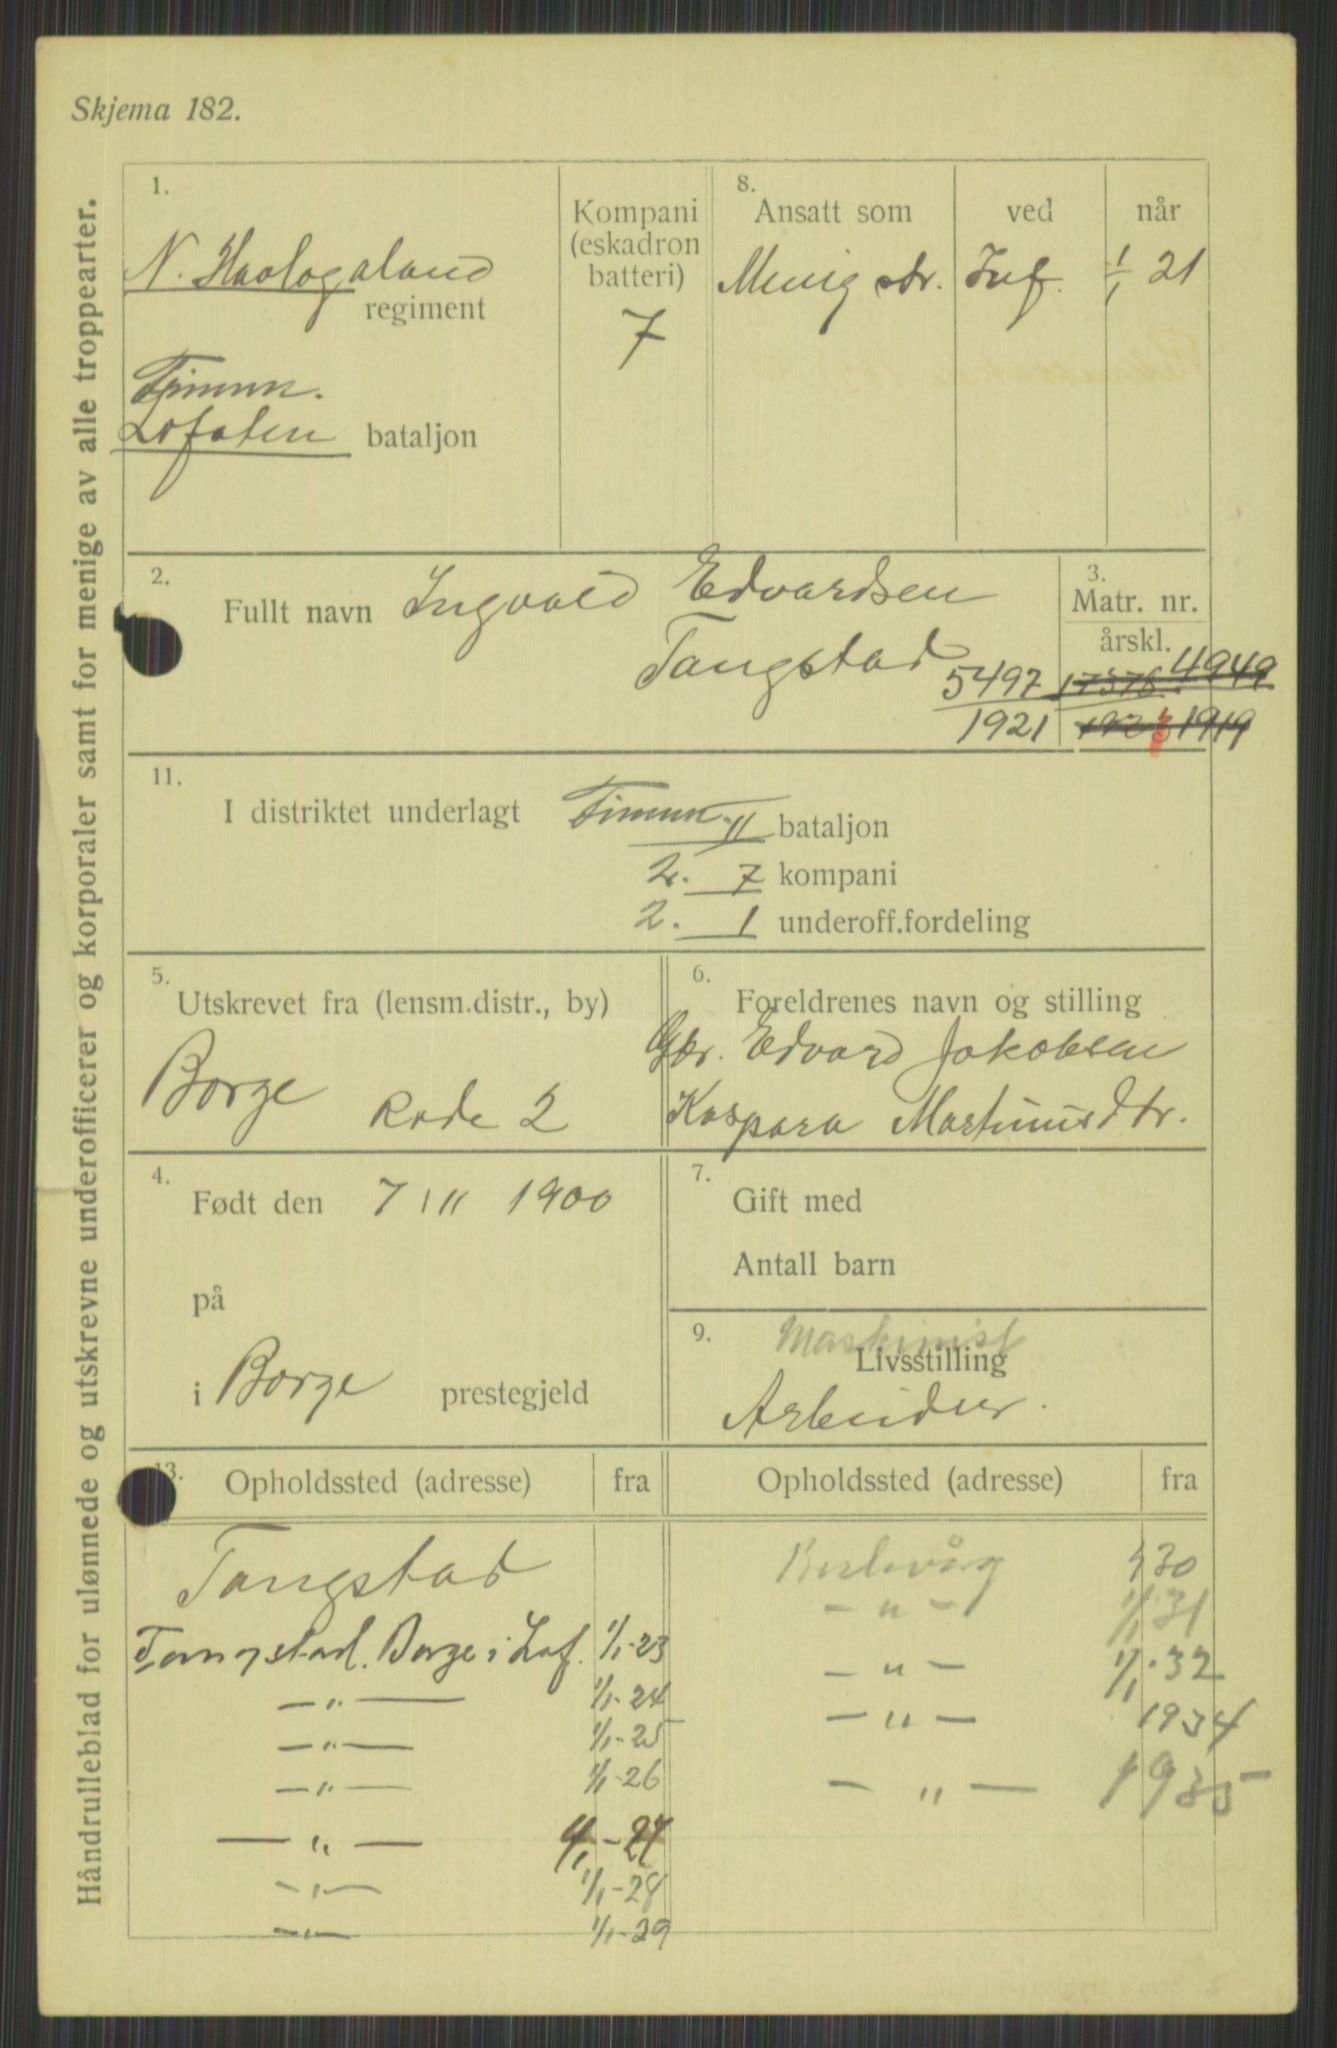 Skjema 182.
Håndrulleblad for ulønnede og utskrevne underofficerer og korporaler samt for menige av alle troppearter.
1.
N. Haalogaland
regiment
Kompani
(eskadron
batteri)
7
8.
Ansatt som
ved
når
Menig str. Inf. 1/1 21
Fimm.
Lofoten bataljon
2.
Fullt navn Ingvald Edvardsen
Tangstad
3.
Matr. nr.
årskl.
5497 17378 4949
1921 1923 1919
11.
I distriktet underlagt Fimm. II bataljon
2. 7 kompani
2. 1 underoff.fordeling
5.
Utskrevet fra (lensm.distr., by)
Borge Rode 2
6.
Foreldrenes navn og stilling
Gbr. Edvard Jakobsen
Kaspara Martinusdtr.
4.
Født den 7/11 1900
på
i Borge prestegjeld
7.
Gift med
Antall barn
9.
Maskinist
Livsstilling
Arbeider.
13.
Opholdssted (adresse) fra
Tangstad
Tangstad. Borge i Lof. 1/1-23
— " — 1/1-24
— " — 1/1-25
— " — 1/1-26
— " — 1/1-27
— " — 1/1-28
— " — 1/1-29
Opholdssted (adresse) fra
Berlevåg 30
— " — 1/1 31
— " — 1/1.32
— " — 1934
— " — 1935